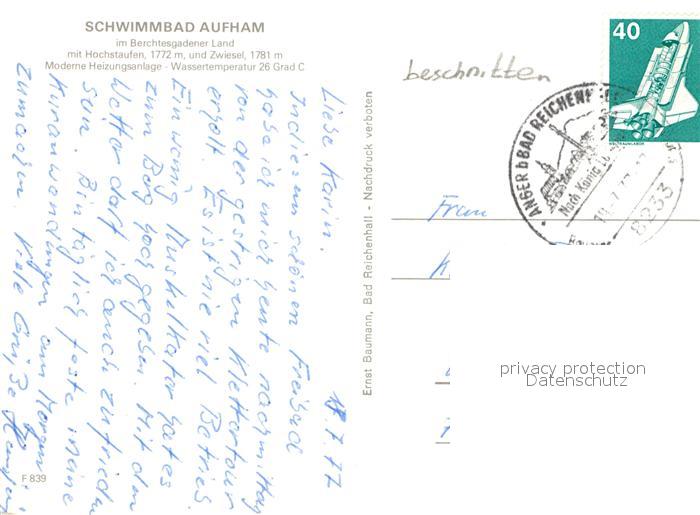 SCHWIMMBAD AUFHAM
im Berchtesgadener Land
mit Hochstaufen, 1772 m, und Zwiesel, 1781 m
Moderne Heizungsanlage - Wassertemperatur 26 Grad C
beschnitten
40
WELTRAUMLABOR
ANGER b BAD REICHENH
8233
Frau
K
Ernst Baumann, Bad Reichenhall - Nachdruck verboten
privacy protection
Datenschutz
7.77
Liebe Karin,
In diesem schönen Freibad
habe ich mich heute nachmittag
von der gestrigen Klettertour
erholt. Es ist nie viel Betrieb.
Ein wenig Muskelkater gab es
zum Berg hoch gegeben. Mit dem
Wetter darf ich auch zufrieden
sein. Bin täglich feste meine
Kuranwendungen am Morgen
zumachen. Viele Grüße
F 839